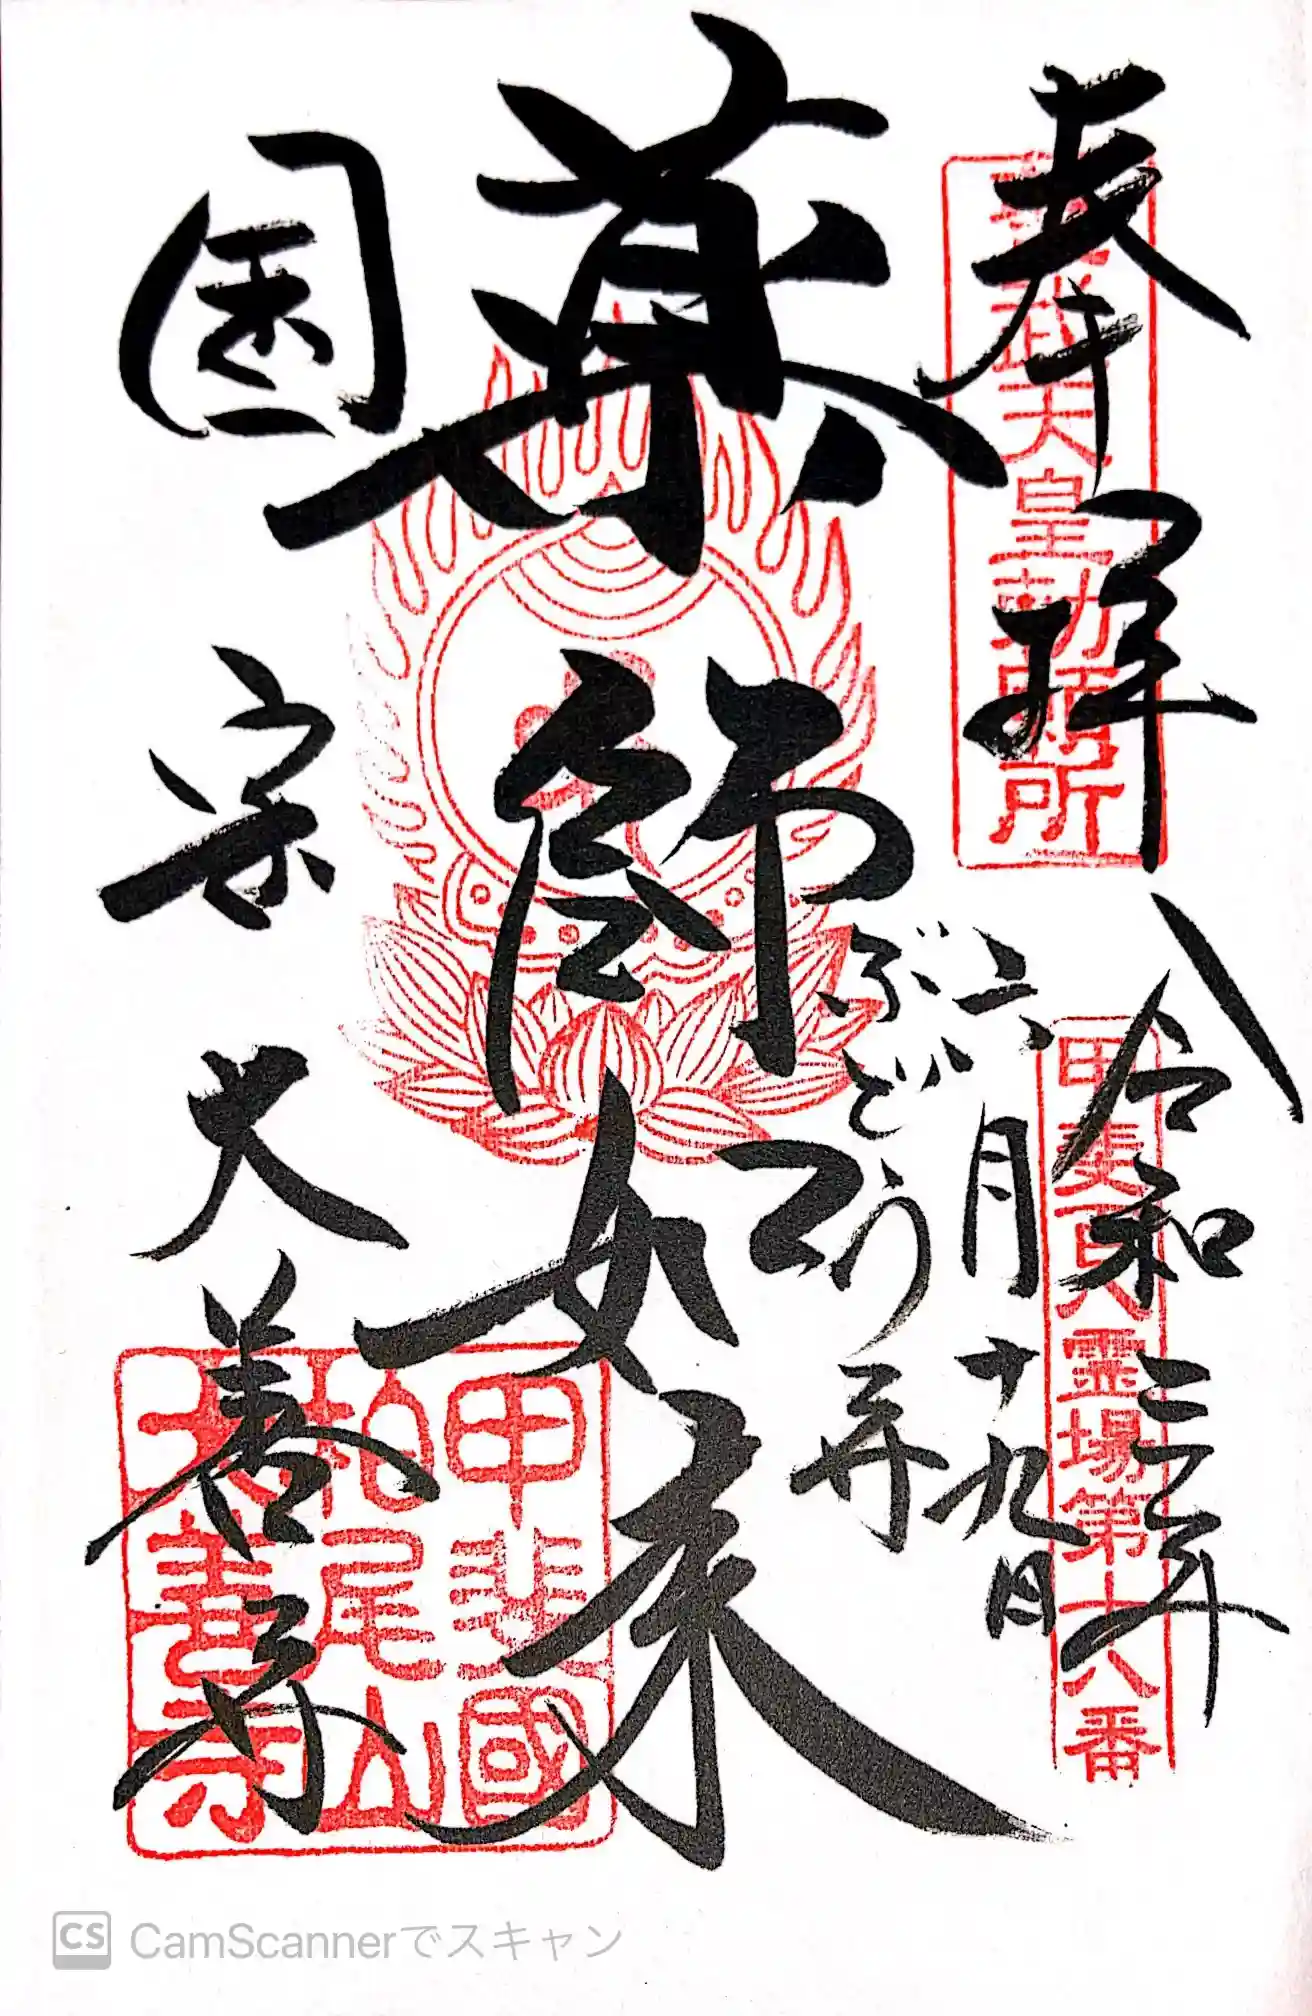 奉拝
聖武天皇勅願所
令和三年
六月十九日
甲斐百霊場第十八番
ぶどう
薬師如来
国宝
大善寺
甲斐國
柏尾山
大善寺
CS CamScannerでスキャン